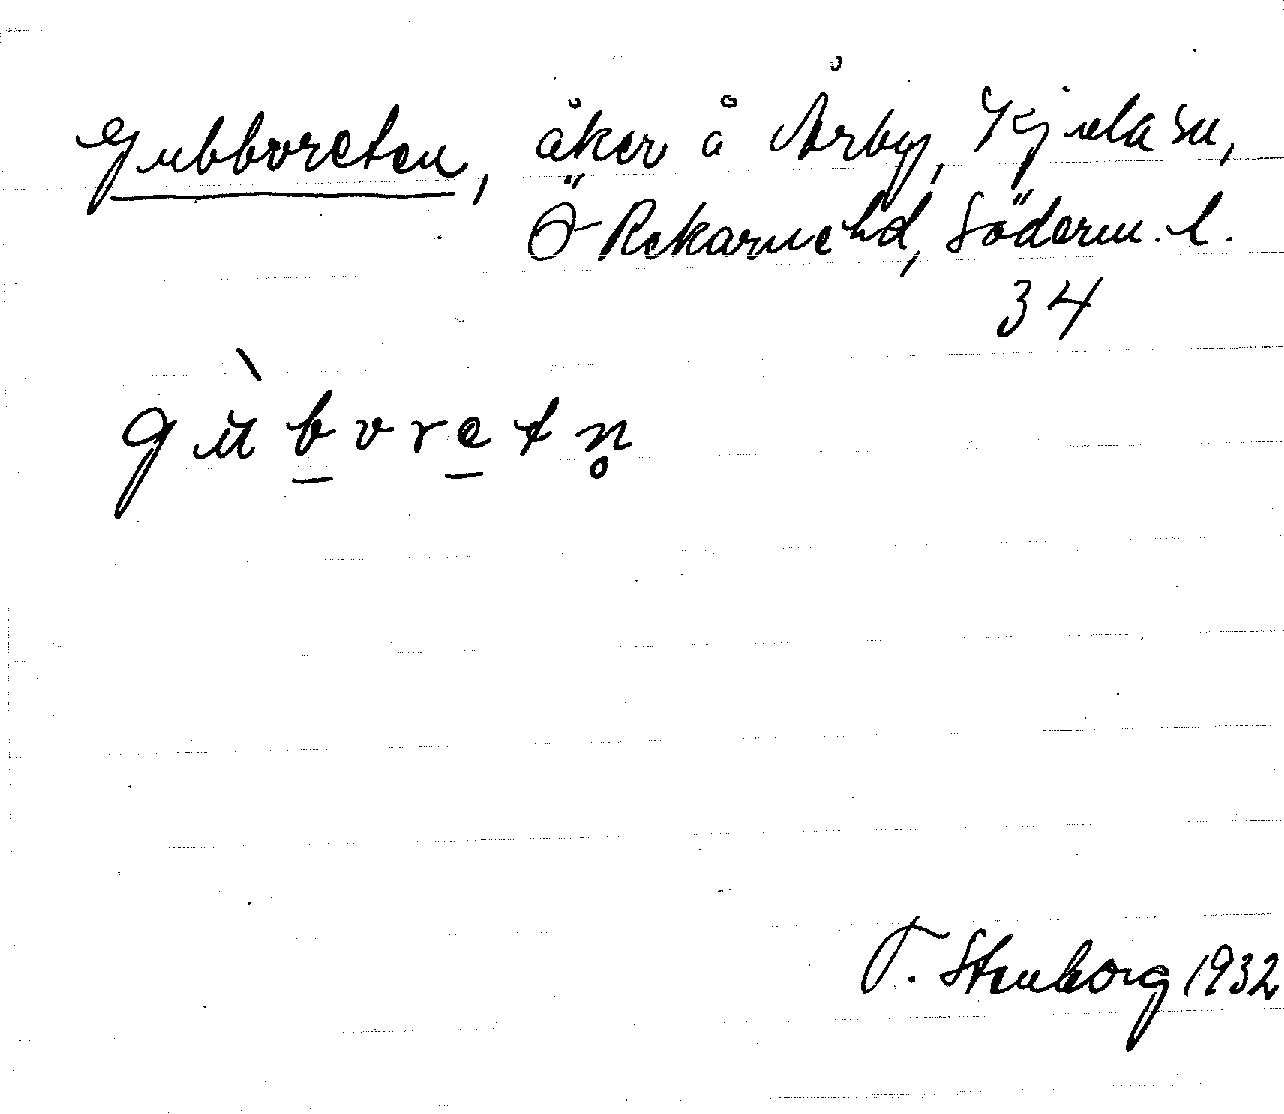 Gubbvreten, åker å Årby, Kjula sn,
Ö Rekarne hd, Söderm. l.
34
gùbvretn̥
T. Stenborg 1932